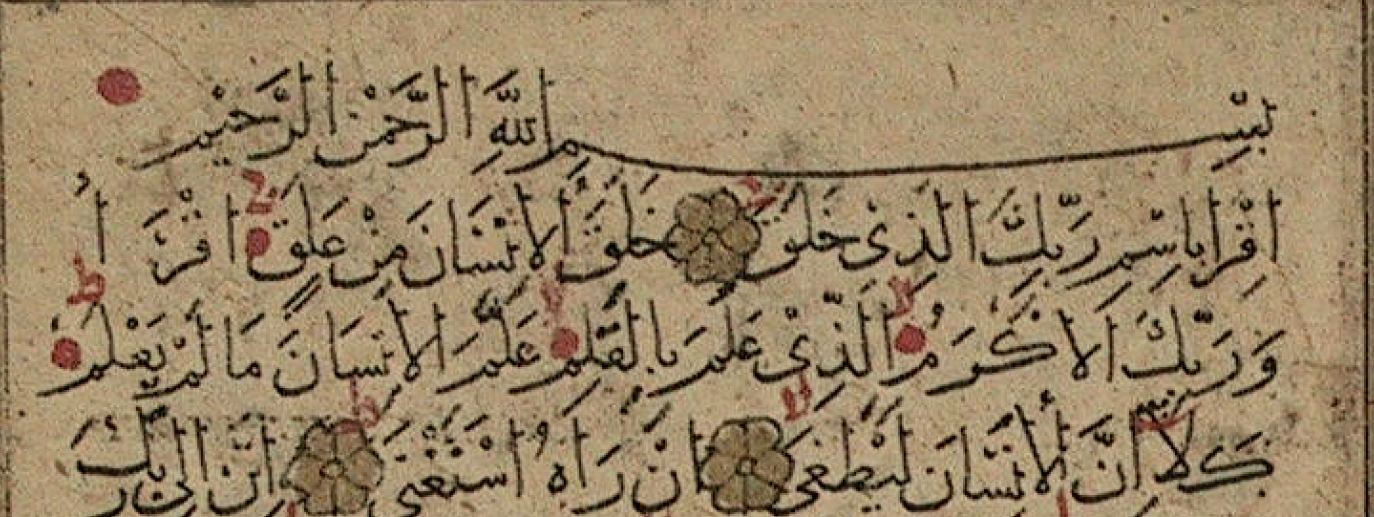 بِسْمِ اللَّهِ الرَّحْمٰنِ الرَّحِيْمِ
اِقْرَا بِاسْمِ رَبِّكَ الَّذِىْ خَلَقَ خَلَقَ الْاِنْسَانَ مِنْ عَلَقٍ اقْرَ أْ
وَرَبُّكَ الْاَكْرَمُ الَّذِىْ عَلَّمَ بِالْقَلَمِ عَلَّمَ الْاِنْسَانَ مَا لَمْ يَعْلَمْ
كَلَّا اِنَّ الْاِنْسَانَ لَيَطْغٰى اَنْ رَاٰهُ اسْتَغْنٰى اِنَّ اِلٰى رَبِّكَ